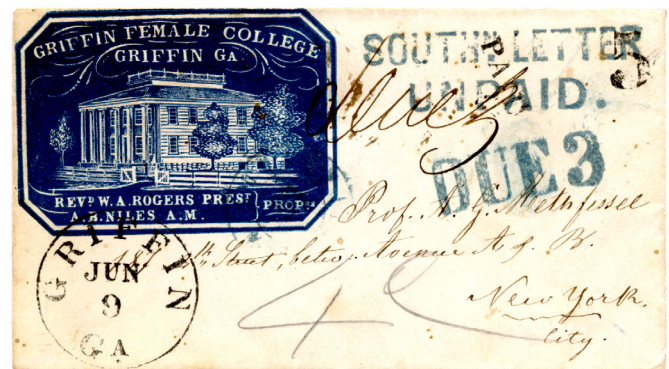 GRIFFIN FEMALE COLLEGE
GRIFFIN GA.
REVD W. A. ROGERS PREST
A. B. NILES A. M.
PROPRS
SOUTHN LETTER
UNPAID.
PAID
DUE 3
due 3
GRIFFIN
JUN
9
GA
Prof. A. G. Methfessel
Street, betw. Avenue A & B.
New York.
City.